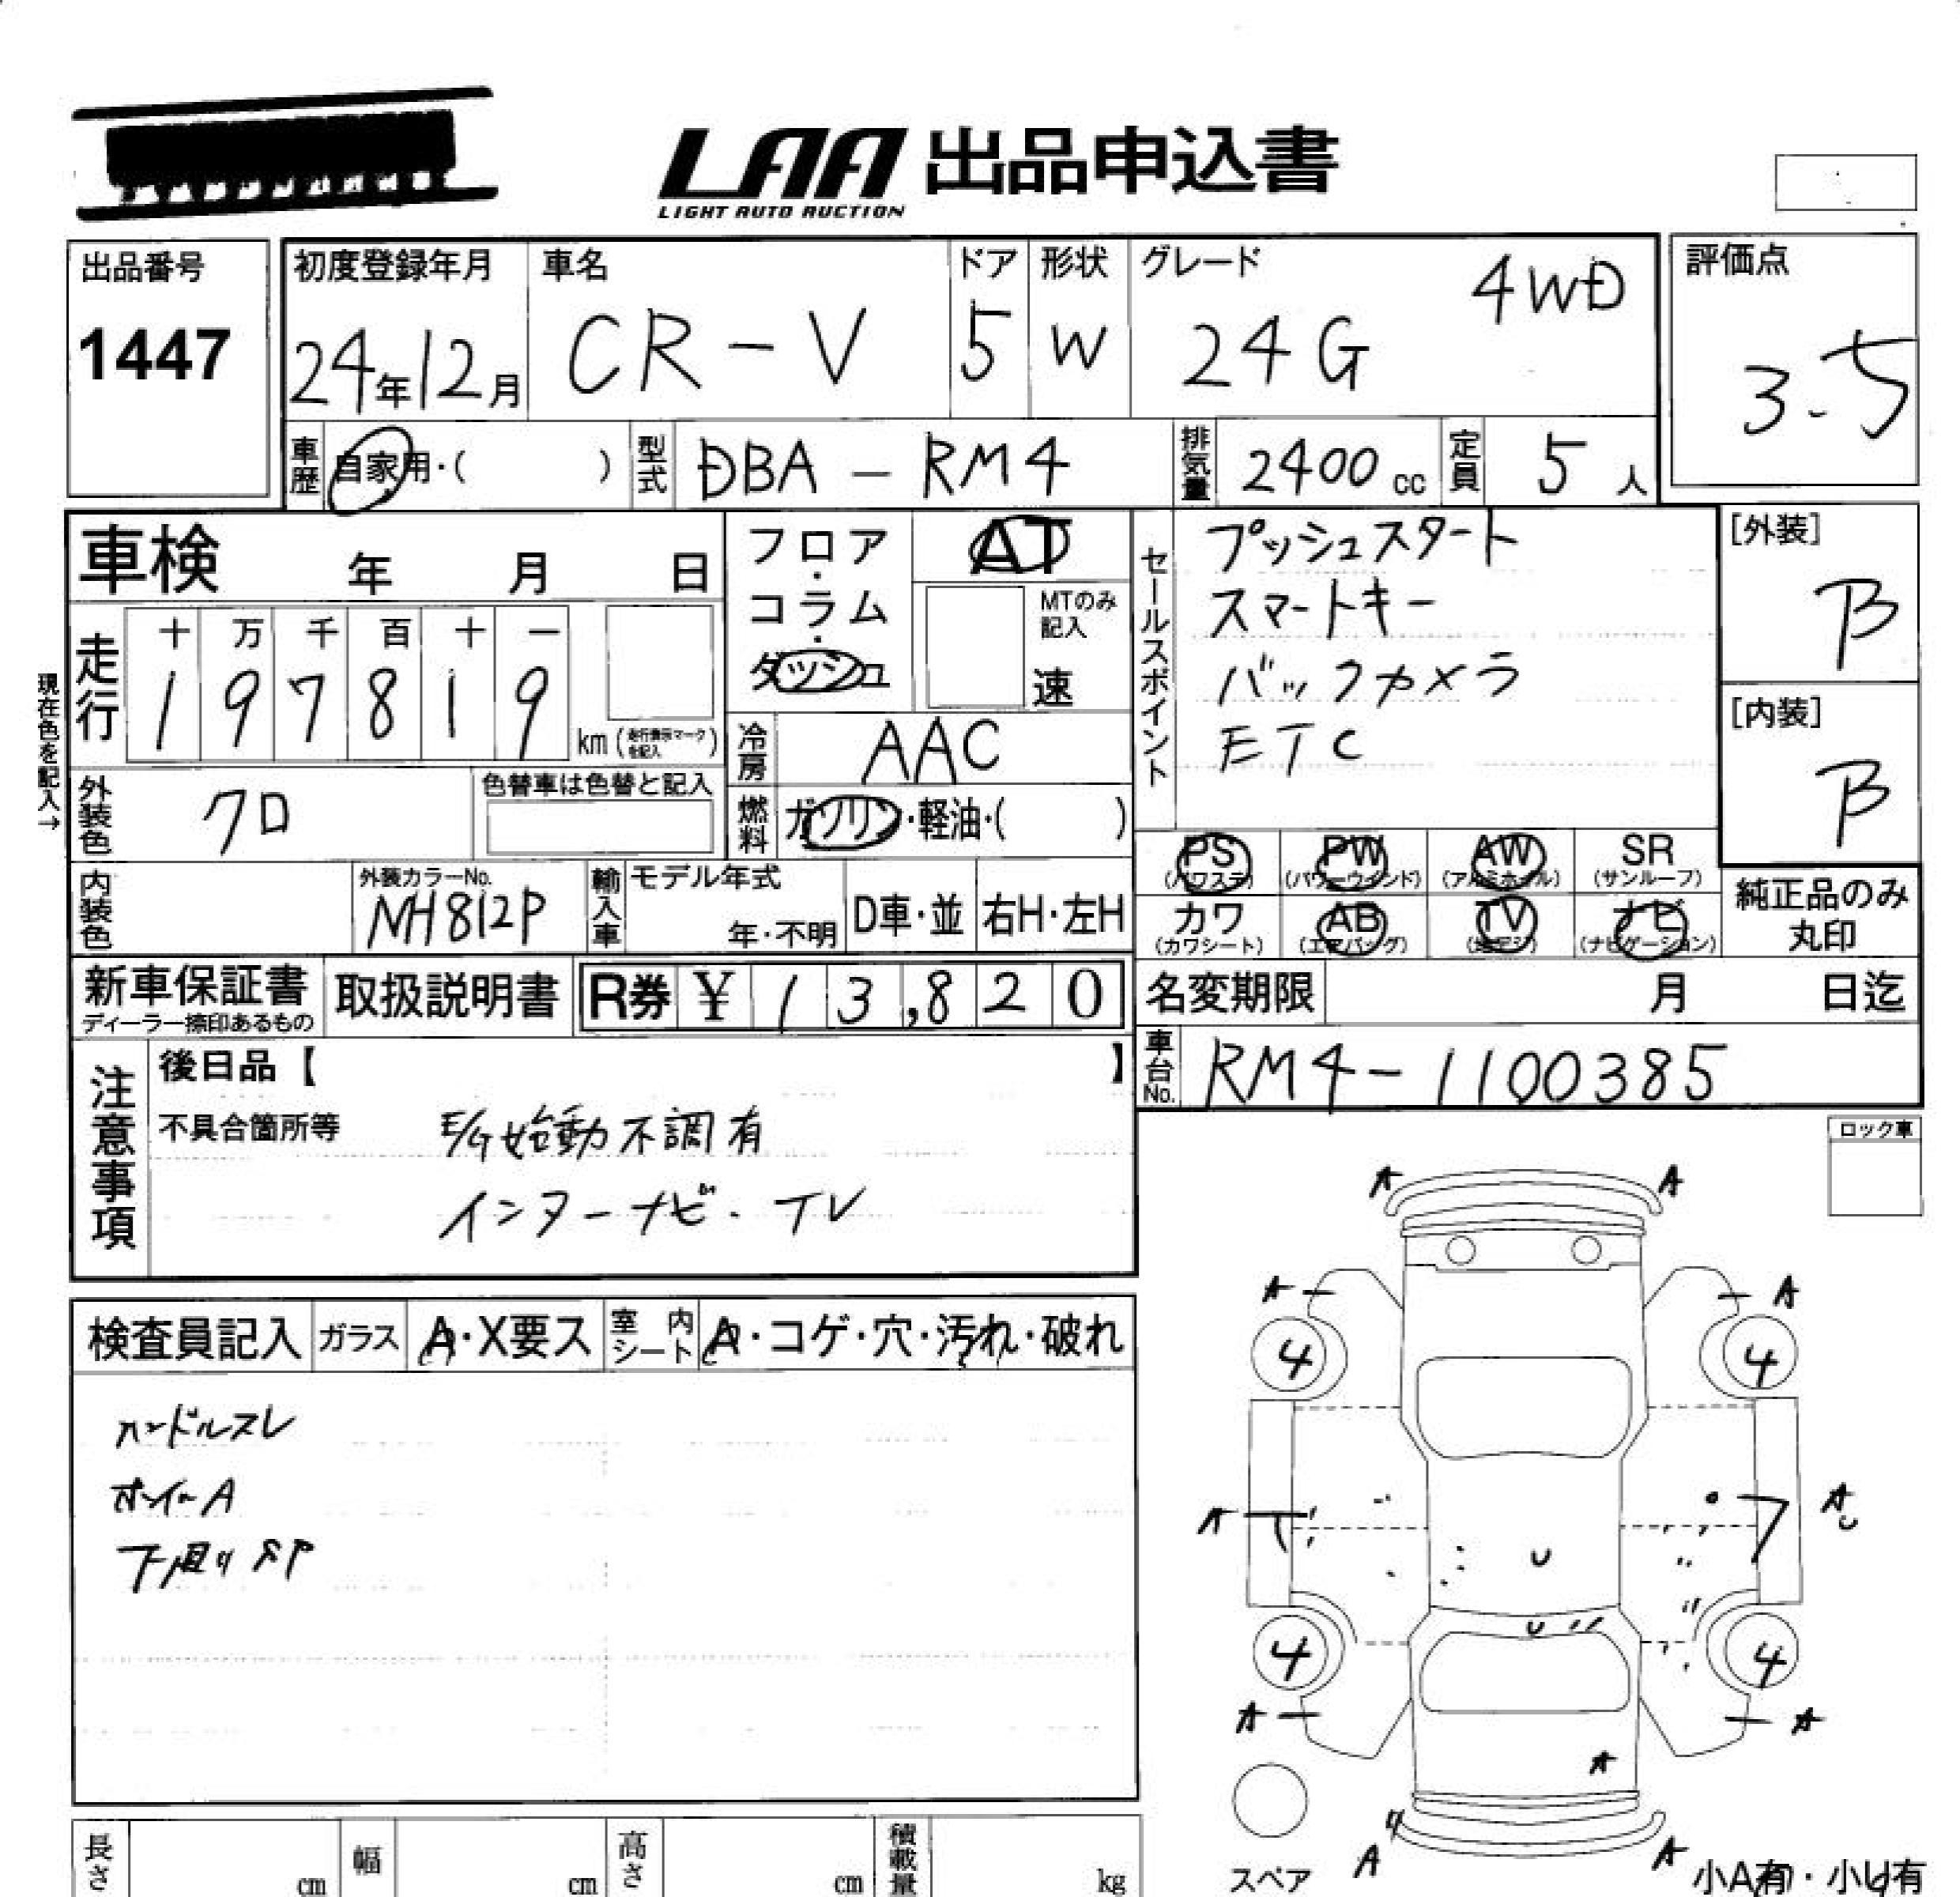 LAA 出品申込書
LIGHT AUTO AUCTION
出品番号
1447
初度登録年月
24年12月
車名
CR-V
ドア
5
形状
W
グレード
24G 4WD
評価点
3.5
車歴
自家用・( )
型式
DBA-RM4
排気量
2400cc
定員
5人
車検 年 月 日
フロア・コラム・ダッシュ
AT
MTのみ記入
速
セールスポイント
プッシュスタート
スマートキー
バックカメラ
ETC
[外装]
B
[内装]
B
現在色を記入→
走行
十 万 千 百 十 一
1 9 7 8 1 9
km(走行表示マークを記入)
冷房
AAC
外装色
クロ
色替車は色替と記入
燃料
ガソリン・軽油・( )
PS (パワステ)
PW (パワーウインド)
AW (アルミホイル)
SR (サンルーフ)
カワ (カワシート)
AB (エアバッグ)
TV (地デジ)
ナビ (ナビゲーション)
純正品のみ丸印
内装色
外装カラーNo.
NH812P
輸入車
モデル年式
年・不明
D車・並
右H・左H
新車保証書
ディーラー捺印あるもの
取扱説明書
R券 ¥ 1 3,8 2 0
名変期限 月 日迄
車台No.
RM4-1100385
注意事項
後日品【 】
不具合箇所等
E/G始動不調有
インターナビ・TV
ロック車
検査員記入
ガラス
A・X要ス
室内シート
A・コゲ・穴・汚れ・破れ
ハンドルスレ
ホイールA
下廻りSP
A A
A A
4 4
A A
U
U
U
4 4
A A
A
A A
スペア
小A有・小U有
長さ cm
幅 cm
高さ cm
積載量 kg